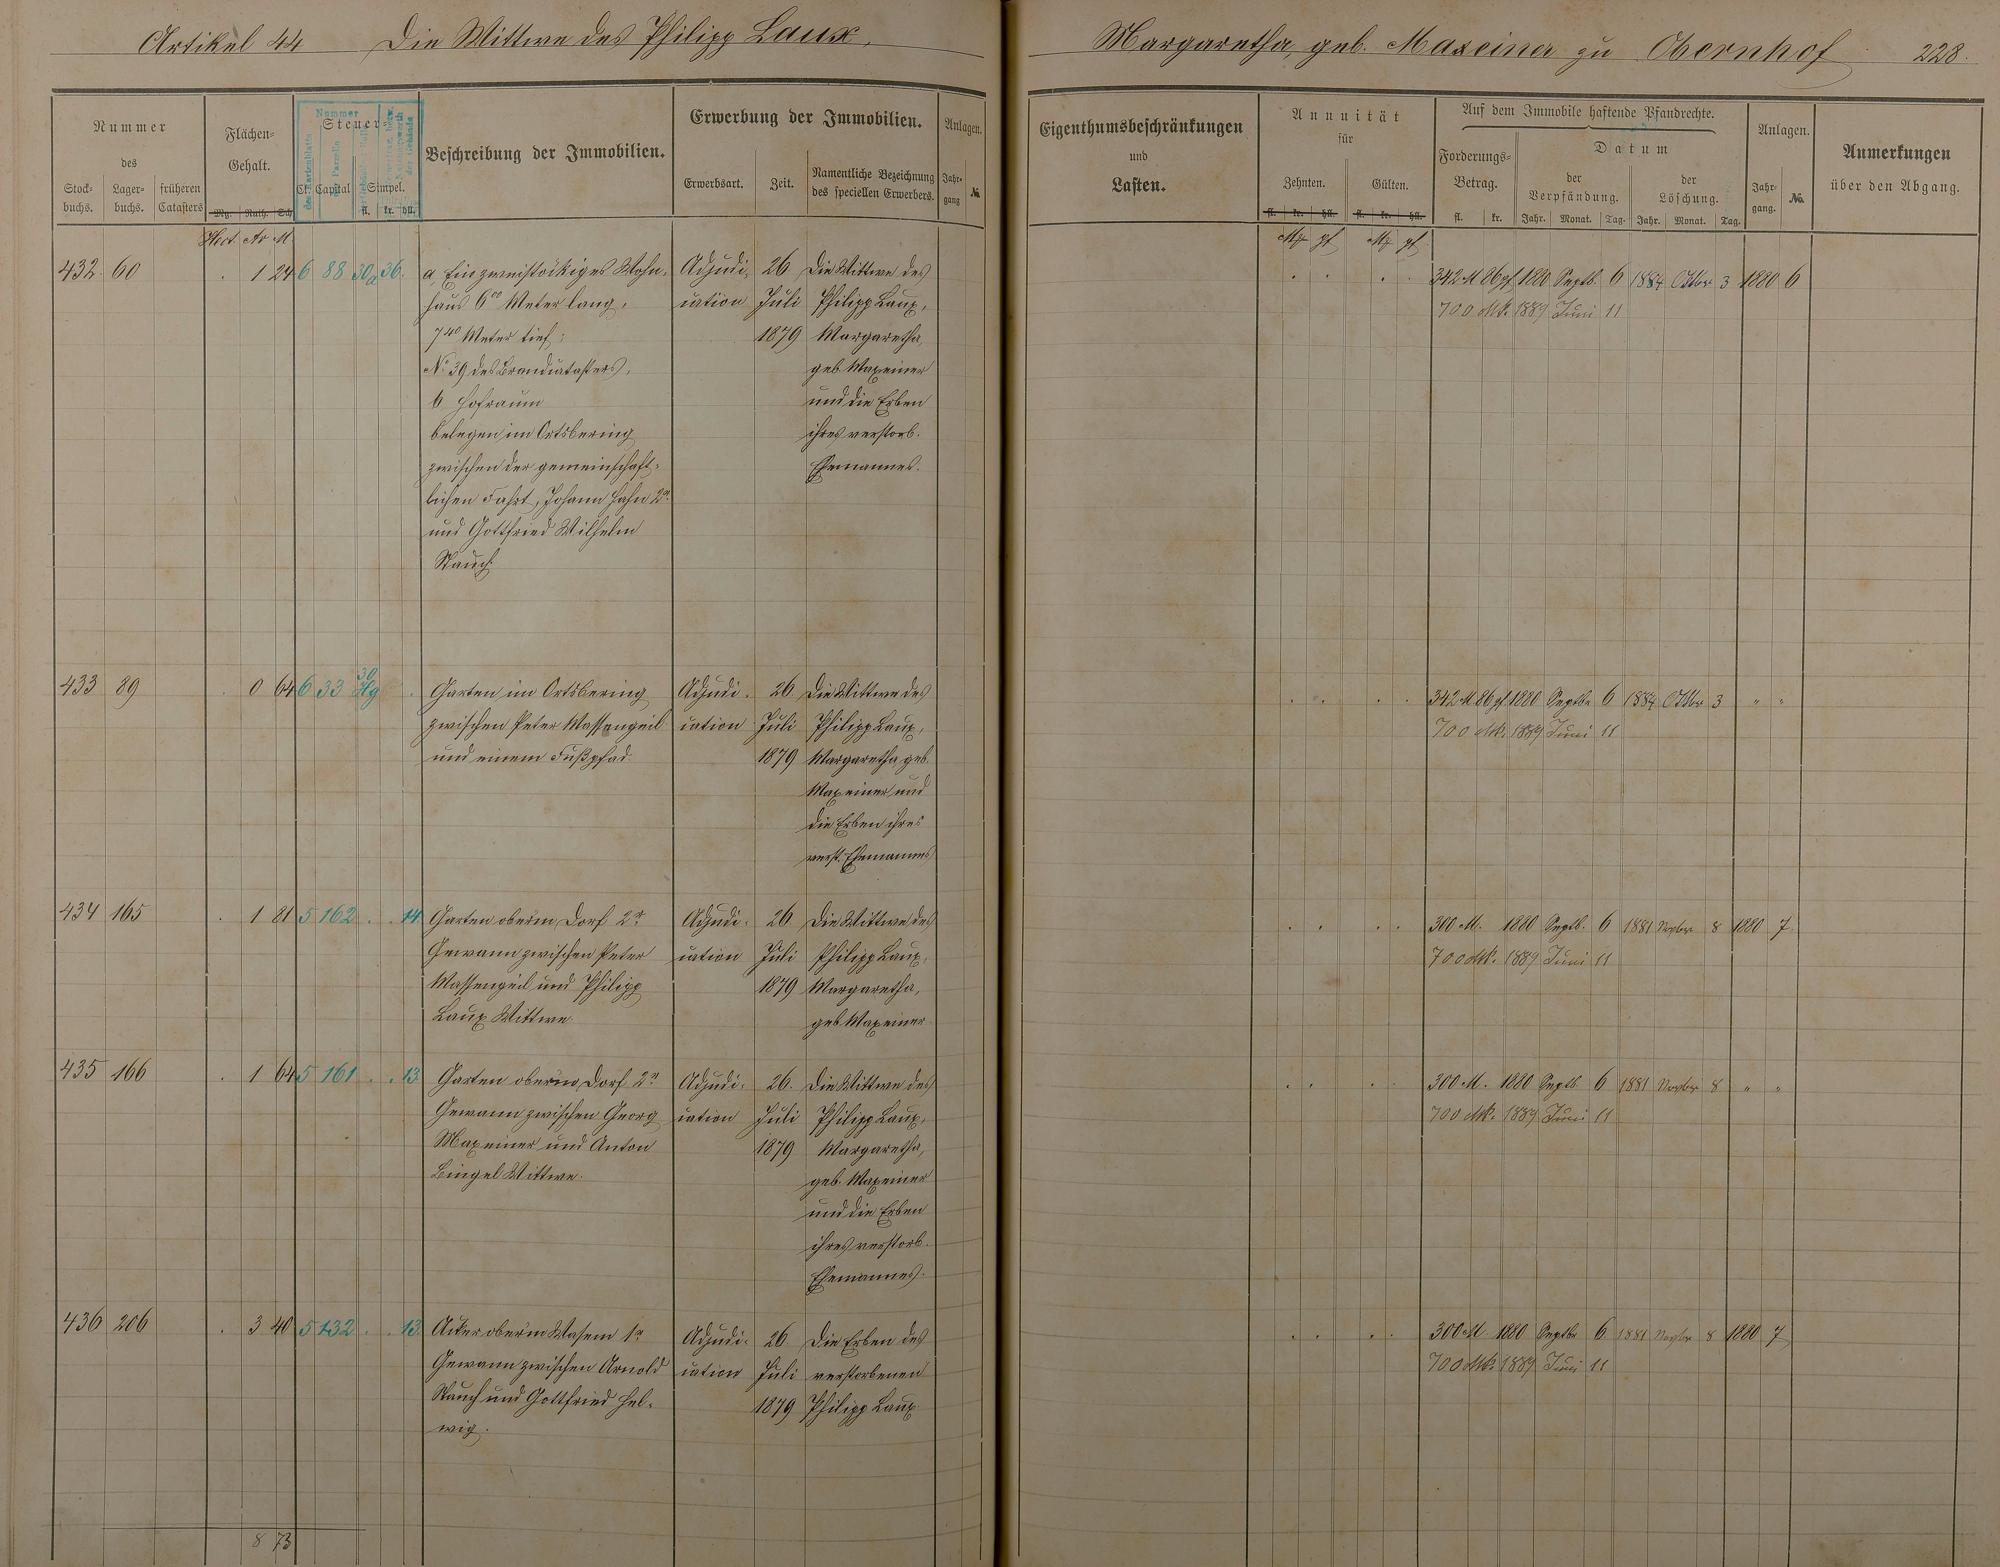 Artikel 44 Die Wittwe des Philipp Laux,
Margaretha, geb. Maxeiner zu Obernhof 228.
Nummer
des
Stock-
buchs.
Lager-
buchs.
früheren
Catasters
Flächen-
Gehalt.
Mg. Ruth. Sch
Nummer
Steuer-
Ct. Capital Simpel.
fl. kr. hll.
Beschreibung der Immobilien.
Erwerbung der Immobilien.
Erwerbsart.
Zeit.
Namentliche Bezeichnung
des speciellen Erwerbers.
Anlagen.
Jahr-
gang
№.
Eigenthumsbeschränkungen
und
Lasten.
Annuität
für
Zehnten.
Gülten.
fl. kr. hll. fl. kr. hll.
Auf dem Immobile haftende Pfandrechte.
Forderungs-
Betrag.
fl. kr.
Datum
der
Verpfändung.
Jahr. Monat. Tag.
der
Löschung.
Jahr. Monat. Tag.
Anlagen.
Jahr-
gang.
No.
Anmerkungen
über den Abgang.
Hect. Ar M.
Mk pf Mk pf
432 60 1 24 6 88 30a 36.
a, Ein zweistöckiges Wohn-
haus 6 00 Meter lang,
7 40 Meter tief;
No 39 des Brandcatasters,
b Hofraum
belegen im Ortsbering
zwischen der gemeinschaft-
lichen Fahrt, Johann Hahn 2r
und Gottfried Wilhelm
Rauch
Adjudi-
cation
26
Juli
1879
Die Wittwe des
Philipp Laux,
Margaretha,
geb. Maxeiner
und die Erben
ihres verstorb.
Ehemannes.
342 M 86 pf 1880 Septb. 6 1884 Octbr 3 1880 6
700 Mk. 1889 Juni 11
433 89 0 64 6 33 30
Hg
Garten im Ortsbering
zwischen Peter Massengeil
und einem Fußpfad.
Adjudi-
cation
26
Juli
1879
Die Wittwe des
Philipp Laux,
Margaretha geb.
Maxeiner und
die Erben ihres
verst. Ehemannes
342 M 86 pf 1880 Septbr 6 1884 Octbr 3 " "
700 Mk. 1889 Juni 11
434 165 1 81 5 162 14
Garten oberm Dorf 2r
Gewann zwischen Peter
Massengeil und Philipp
Laux Wittwe.
Adjudi-
cation
26
Juli
1879
Die Wittwe des
Philipp Laux,
Margaretha,
geb. Maxeiner
300 M. 1880 Septb. 6 1881 Novbr 8 1880 7.
700 Mk. 1889 Juni 11
435 166 1 64 5 161 13
Garten oberm Dorf 2r
Gewann zwischen Georg
Maxeiner und Anton
Bingel Wittwe.
Adjudi-
cation
26.
Juli
1879
Die Wittwe des
Philipp Laux,
Margaretha,
geb. Maxeiner
und die Erben
ihres verstorb.
Ehemannes.
300 M. 1880 Septb 6 1881 Novbr 8 " "
700 Mk. 1889 Juni 11
436 206 3 40 5 132 13
Acker oberm Wasem 1r
Gewann zwischen Arnold
Rauch und Gottfried Hel-
wig.
Adjudi-
cation
26
Juli
1879
Die Erben des
verstorbenen
Philipp Laux
300 M. 1880 Septbr 6 1881 Novbr 8 1880 7
700 Mk 1889 Juni 11
8 73